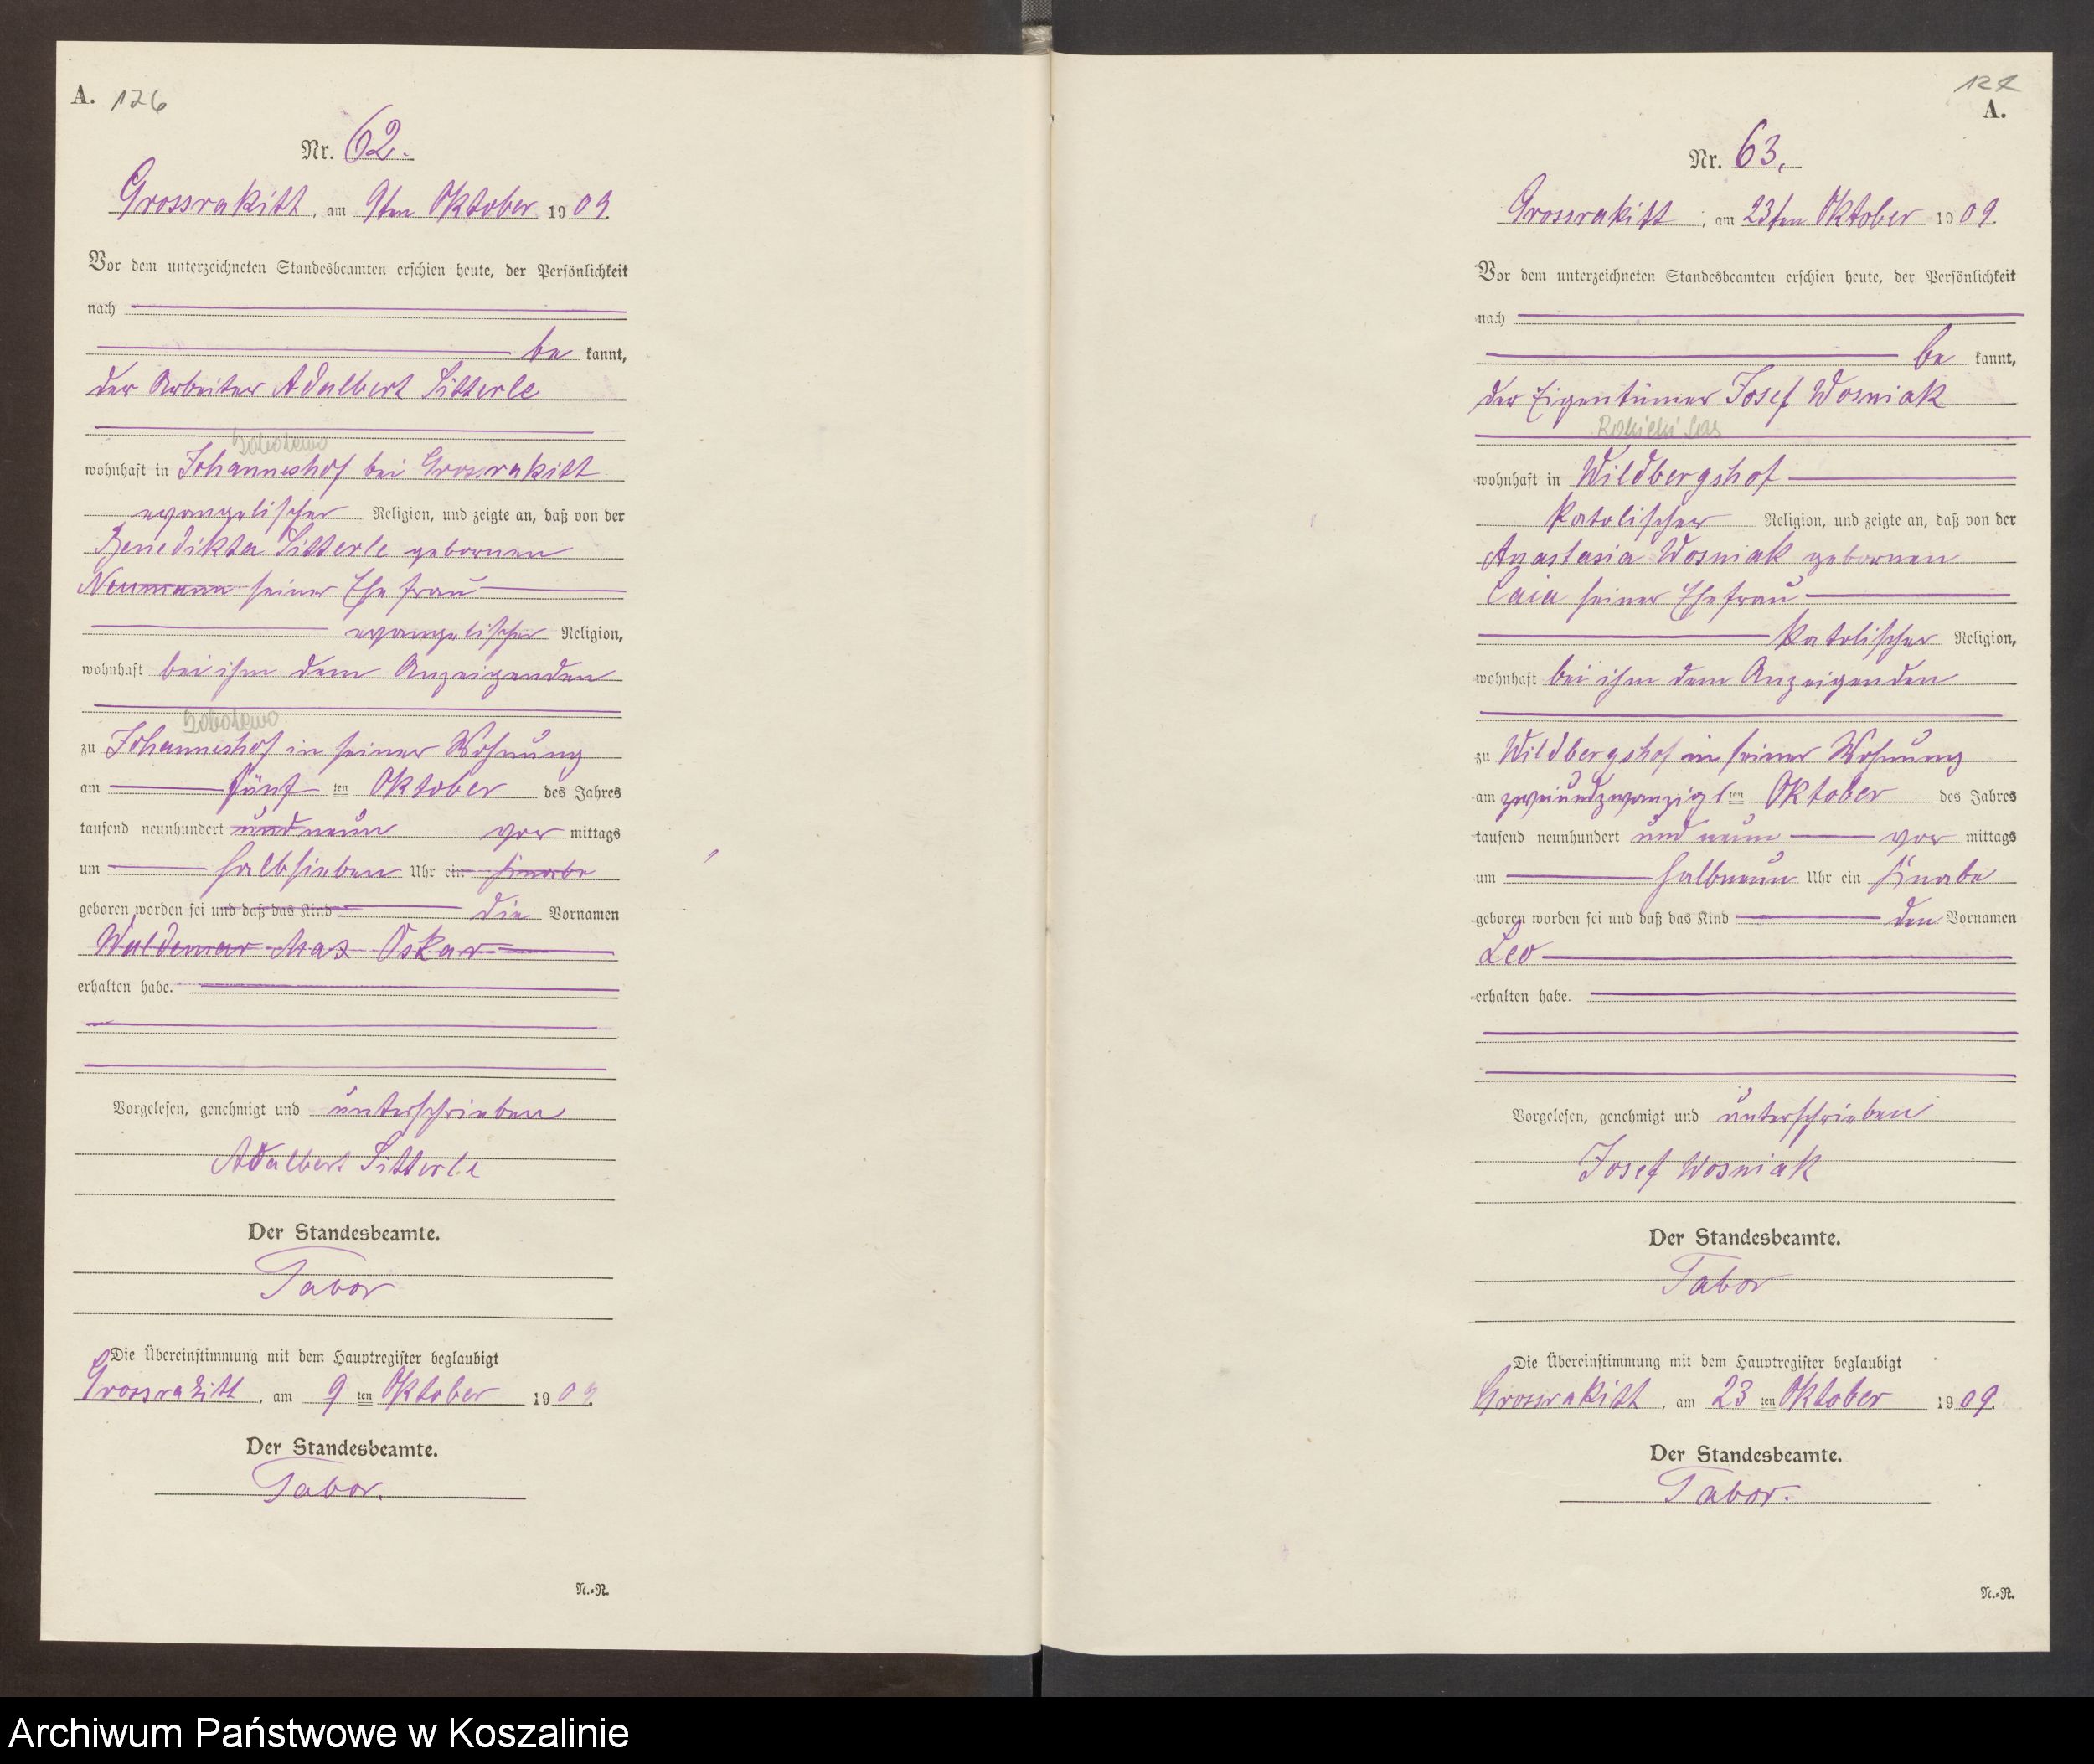 A. 126
Nr. 62.
Grossrakitt, am 9ten Oktober 1909.
Vor dem unterzeichneten Standesbeamten erschien heute, der Persönlichkeit
nach
be kannt,
der Arbeiter Adalbert Sitterle
wohnhaft in Johanneshof bei Grossrakitt
evangelischer Religion, und zeigte an, daß von der
Benedikta Sitterle gebornen
Neumann seiner Ehefrau
evangelischer Religion,
wohnhaft bei ihm dem Anzeigenden
zu Johanneshof in seiner Wohnung
am fünf ten Oktober des Jahres
tausend neunhundert und neun vor mittags
um halbsieben Uhr ein Knabe
geboren worden sei und daß das Kind die Vornamen
Waldemar Max Oskar
erhalten habe.
Vorgelesen, genehmigt und unterschrieben
Adalbert Sitterle
Der Standesbeamte.
Tabor
Die Übereinstimmung mit dem Hauptregister beglaubigt
Grossrakitt, am 9 ten Oktober 1909.
Der Standesbeamte.
Tabor.
N.-N.
127
A.
Nr. 63.
Grossrakitt, am 23ten Oktober 1909.
Vor dem unterzeichneten Standesbeamten erschien heute, der Persönlichkeit
nach
be kannt,
der Eigentümer Josef Wosniak
wohnhaft in Wildbergshof
katolischer Religion, und zeigte an, daß von der
Anastasia Wosniak gebornen
Caia seiner Ehefrau
katolischer Religion,
wohnhaft bei ihm dem Anzeigenden
zu Wildbergshof in seiner Wohnung
am zweiundzwanzigs ten Oktober des Jahres
tausend neunhundert und neun vor mittags
um halbneun Uhr ein Knabe
geboren worden sei und daß das Kind den Vornamen
Leo
erhalten habe.
Vorgelesen, genehmigt und unterschrieben
Josef Wosniak
Der Standesbeamte.
Tabor
Die Übereinstimmung mit dem Hauptregister beglaubigt
Grossrakitt, am 23 ten Oktober 1909.
Der Standesbeamte.
Tabor.
N.-N.
Archiwum Państwowe w Koszalinie